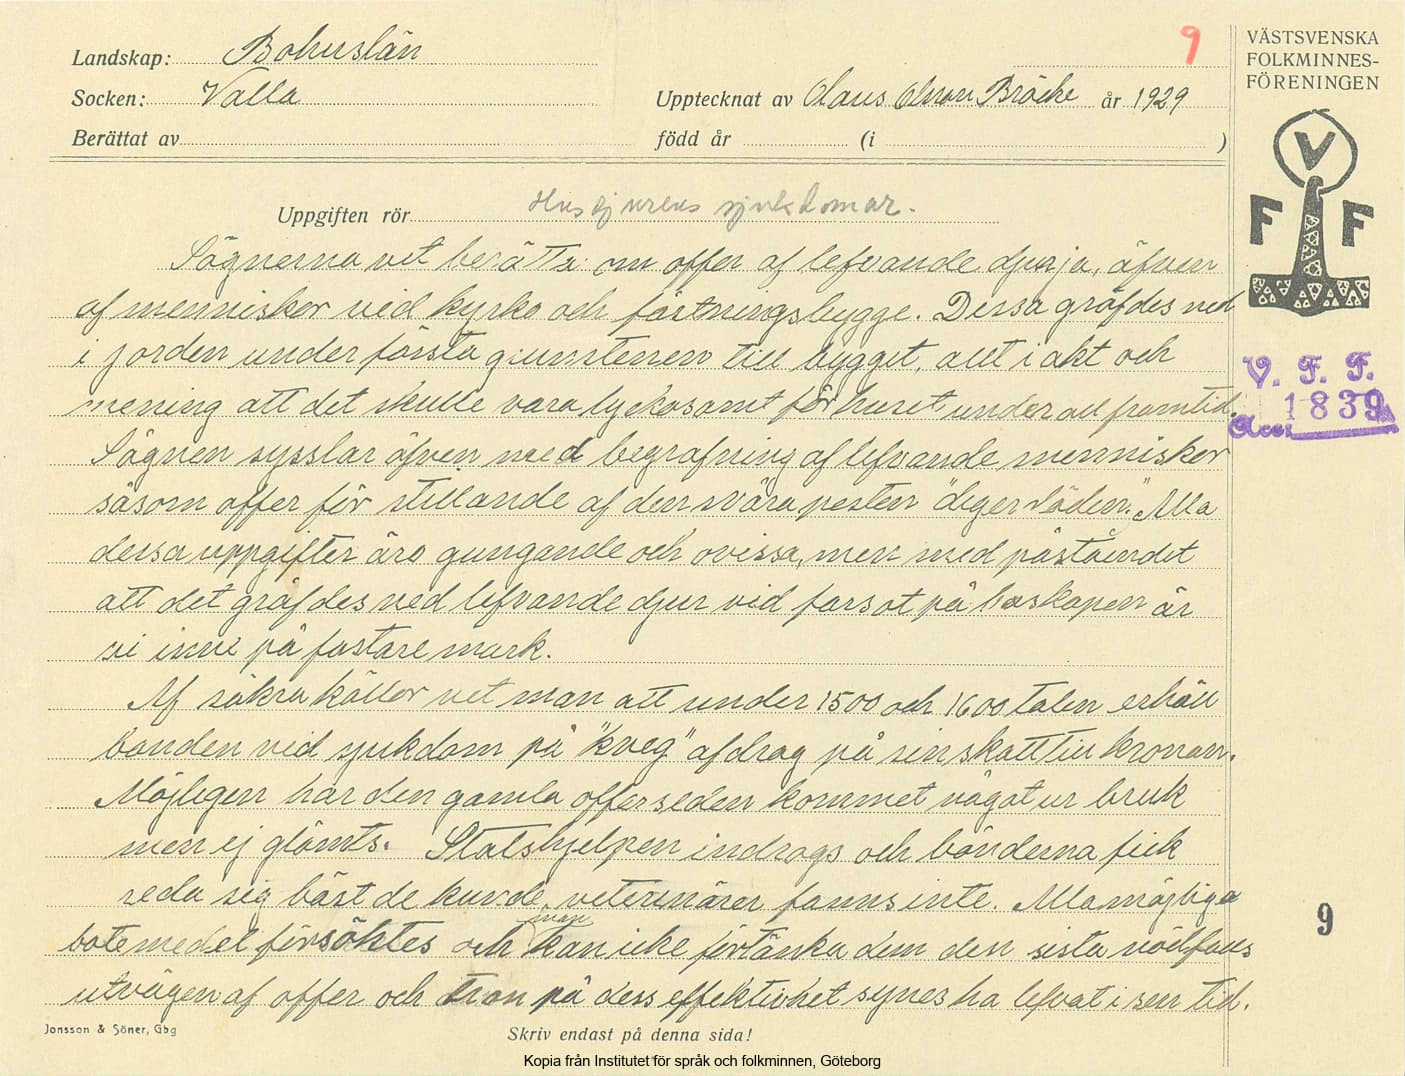 9
VÄSTSVENSKA
FOLKMINNES-
FÖRENINGEN
Landskap: Bohuslän
Socken: Valla
Upptecknat av Olaus Olsson Bräcke år 1929
Berättat av
född år (i )
V
F F
Uppgiften rör Husdjurens sjukdomar.
Sägnerna vet berätta om offer af lefvande djur ja, äfven
af menniskor vid kyrko och fästningsbygge. Dessa gräfdes ned
i jorden under första grunstenen till bygget, allt i akt och
mening att det skulle vara lyckosamt för huset under all framtid.
Sägnen sysslar äfven med begrafning af lefvande menniskor
såsom offer för stillande af den svåra pesten "digerdöden." Alla
dessa uppgifter äro gungande och ovissa, men med påståendet
att det gräfdes ned lefvande djur vid farsot på boskapen är
vi inne på fastare mark.
Af säkra källor vet man att under 1500 och 1600 talen erhöll
bonden vid sjukdom på "kveg" afdrag på sin skatt till kronan.
Möjligen har den gamla offerseden kommet något ur bruk
men ej glömts. Statshjelpen indrogs och bönderna fick
reda sig bäst de kunde, veterinärer fanns inte. Alla möjliga
botemedel försöktes och man kan icke förtänka dem den sista nödfalls
utvägen af offer och tron på dess effektivitet synes ha lefvat i sen tid.
V. F. F.
1839
Acc.
9
Jonsson & Söner, Gbg
Skriv endast på denna sida!
Kopia från Institutet för språk och folkminnen, Göteborg